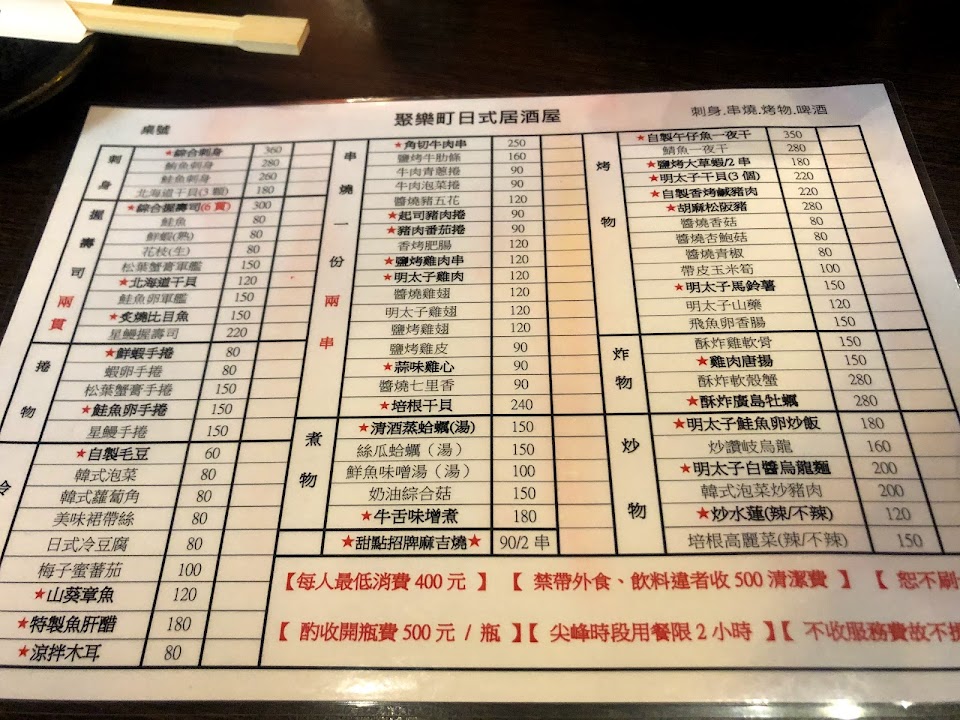 聚樂町日式居酒屋
刺身.串燒.烤物.啤酒
桌號
刺身
★綜合刺身 360
鮪魚刺身 280
鮭魚刺身 260
北海道干貝(3 顆) 180
握壽司兩貫
★綜合握壽司(6 貫) 300
鮭魚 80
鮮蝦(熟) 80
花枝(生) 80
松葉蟹膏軍艦 150
★北海道干貝 120
鮭魚卵軍艦 150
★炙燒比目魚 150
星鰻握壽司 220
捲物
★鮮蝦手捲 80
蝦卵手捲 80
松葉蟹膏手捲 150
★鮭魚卵手捲 150
星鰻手捲 150
冷
★自製毛豆 60
韓式泡菜 80
韓式蘿蔔角 80
美味裙帶絲 80
日式冷豆腐 80
梅子蜜番茄 100
★山葵章魚 120
★特製魚肝醋 180
★涼拌木耳 80
串燒一份兩串
★角切牛肉串 250
鹽烤牛肋條 160
牛肉青蔥捲 90
牛肉泡菜捲 90
醬燒豬五花 120
★起司豬肉捲 90
★豬肉番茄捲 90
香烤肥腸 120
★鹽烤雞肉串 120
★明太子雞肉 120
醬燒雞翅 120
明太子雞翅 120
鹽烤雞翅 120
鹽烤雞皮 90
★蒜味雞心 90
醬燒七里香 90
★培根干貝 240
煮物
★清酒蒸蛤蠣(湯) 150
絲瓜蛤蠣（湯） 150
鮮魚味噌湯（湯） 100
奶油綜合菇 150
★牛舌味增煮 180
★甜點招牌麻吉燒★ 90/2 串
烤物
★自製午仔魚一夜干 350
鯖魚一夜干 280
★鹽烤大草蝦/2 串 180
★明太子干貝(3 個) 220
★自製香烤鹹豬肉 220
★胡麻松阪豬 280
醬燒香菇 80
醬燒杏鮑菇 80
醬燒青椒 80
帶皮玉米筍 100
★明太子馬鈴薯 150
明太子山藥 120
飛魚卵香腸 150
炸物
酥炸雞軟骨 150
★雞肉唐揚 150
酥炸軟殼蟹 280
★酥炸廣島牡蠣 280
炒物
★明太子鮭魚卵炒飯 180
炒讚岐烏龍 160
★明太子白醬烏龍麵 200
韓式泡菜炒豬肉 200
★炒水蓮(辣/不辣) 120
培根高麗菜(辣/不辣) 150
【每人最低消費 400 元 】 【 禁帶外食、飲料違者收 500 清潔費 】 【 恕不刷
【 酌收開瓶費 500 元 / 瓶 】【 尖峰時段用餐限 2 小時 】【 不收服務費故不提